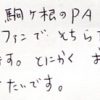 駒ヶ根のPA
ファンで そちらで
す。とにかく お
たいです。